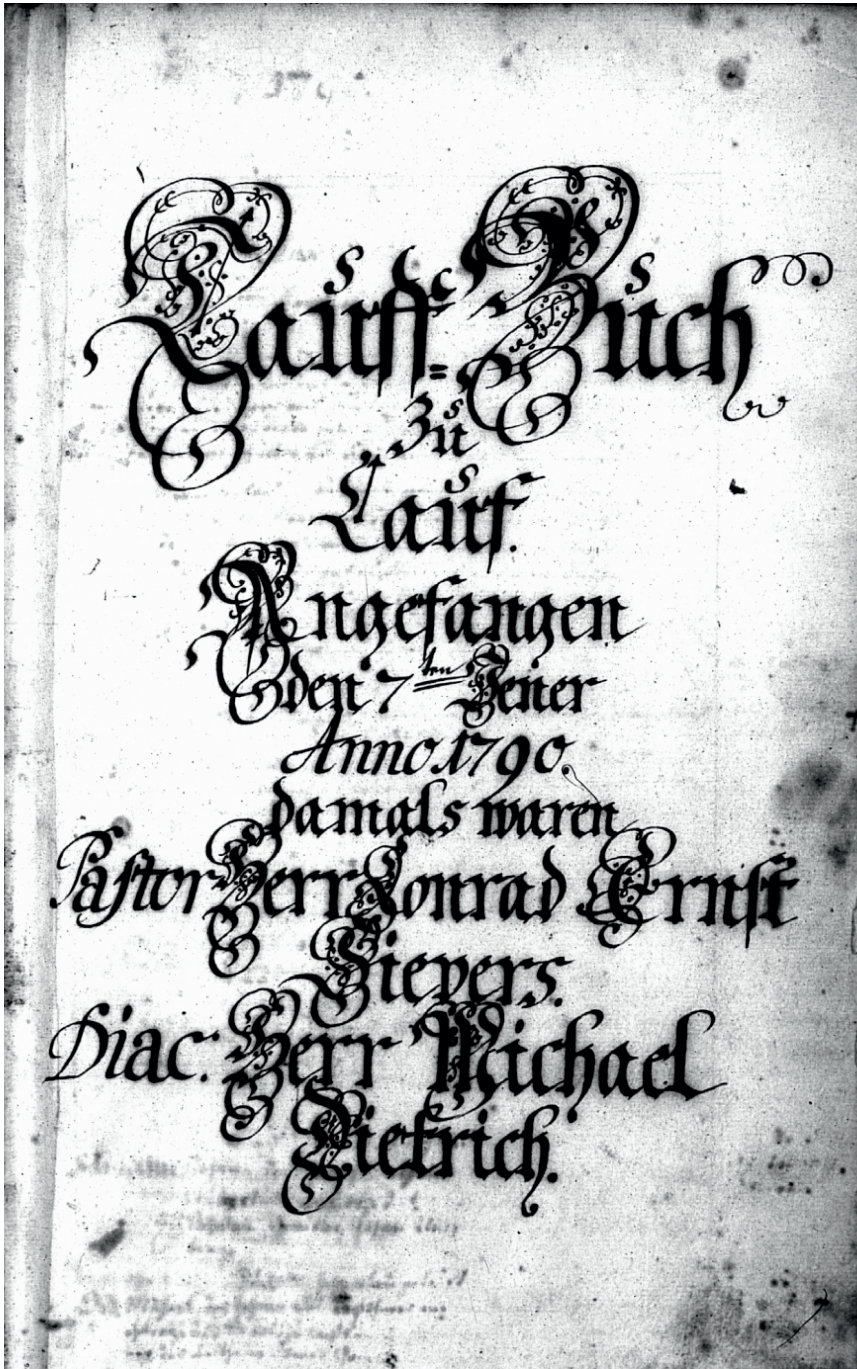 Tauff=Buch
Zu
Lauf.
Angefangen
den 7ten Jener
Anno 1790.
damals waren
Pastor Herr Conrad Ernst
Sievers.
Diac: Herr Michael
Dietrich.